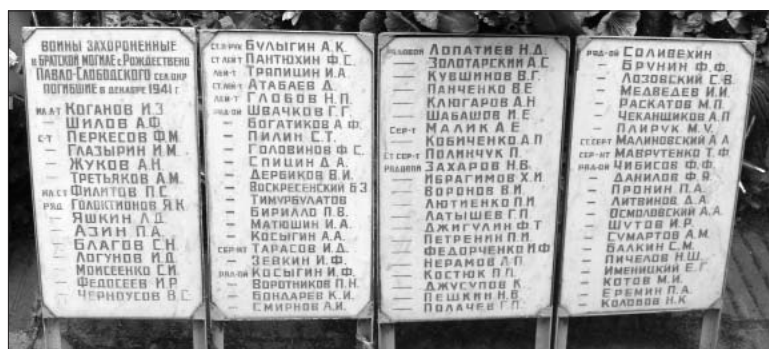 ВОИНЫ ЗАХОРОНЕННЫЕ
В БРАТСКОЙ МОГИЛЕ С. РОЖДЕСТВЕНО
ПАВЛО-СЛОБОДСКОГО СЕЛ.ОКР
ПОГИБШИЕ В ДЕКАБРЕ 1941 Г.
МЛ Л-Т КОГАНОВ И.З
— ШИЛОВ А.Ф.
С-Т ПЕРКЕСОВ Ф.М.
— ГЛАЗЫРИН И.М.
— ЖУКОВ А.Н.
— ТРЕТЬЯКОВ А.М.
МЛ.СТ ФИЛИТОВ П.С.
РЯД ГОЛОКТИОНОВ Я.К
— ЯШКИН Л.Д.
— АЗИН П.А.
— БЛАГОВ С.Н.
— ЛОГУНОВ И.Д.
— МОИСЕЕНКО С.И.
— ФЕДОСЕЕВ И.Р.
— ЧЕРНОУСОВ В.С.
СТ.П-РУК БУЛЫГИН А.К.
СТ ЛЕЙ-Т ПАНТЮХИН Ф.С.
ЛЕЙ-Т ТРЯПИЦИН И.А.
СТ.ЛЕЙ-Т АТАБАЕВ Д.
ЛЕЙ-Т ГЛОБОВ Н.П.
РЯД-ОЙ ШВАЧКОВ Г.Г.
— БОГАТИКОВ А.Ф.
— ПИЛИН С.Т.
— ГОЛОВИНОВ Ф.С.
— СПИЦИН Д.А.
— ДЕРБИКОВ В.И.
— ВОСКРЕСЕНСКИЙ Б.З
— ТИМУРБУЛАТОВ
— БИРИЛЛО П.В.
— МАТЮШИН И.А.
— КОСЫГИН А.А.
СЕР-НТ ТАРАСОВ И.Д.
— ЗЕВКИН И.Ф.
РЯД-ОЙ КОСЫГИН И.Ф.
— ВОРОТНИКОВ П.Н.
— БОНДАРЕВ К.И.
— СМИРНОВ А.И.
РЯДОВОЙ ЛОПАТИЕВ Н.Д.
— ЗОЛОТАРСКИЙ А.С
— КУВШИНОВ В.Г.
— ПАНЧЕНКО В.Е
— КЛЮГАРОВ А.Н
— ШАБАШОВ И.Е.
СЕР-Т МАЛИК А.Е
— КОБИЧЕНКО А.П
СТ СЕР-Т ПОЛИНЧУК П.
РЯДОВОЙ ЗАХАРОВ Н.В.
— ИБРАГИМОВ Х.И
— ВОРОНОВ В.И.
— ЛЮТИЕНКО П.И
— ЛАТЫШЕВ Г.П
— ДЖИГУЛИН Ф.Т
— ПЕТРЕНИН П.И.
— ФЕДОРЧЕНКО И.Ф
— НЕРАМОВ Л.П
— КОСТЮК П.П.
— ДЖУСУПОВ К.
— ПЕШКИН Н.В.
— ПОЛАЧЕВ Г.П.
РЯД-ОЙ СОЛИВЕХИН
— БРУНИН Ф.Ф.
— ЛОЗОВСКИЙ С.В.
— МЕДВЕДЕВ И.И.
— РАСКАТОВ М.П.
— ЧЕКАНЩИКОВ А.П
— ПЛИРУК М.У.
СТ СЕРТ МАЛИНОВСКИЙ А.А
СЕР-НТ МАВРУТЕНКО Т.Ф
РЯД-ОЙ ЧИБИСОВ Ф.Ф.
— ДАНИЛОВ Ф.Я.
— ПРОНИН П.А.
— ЛИТВИНОВ Д.А.
— ОСМОЛОВСКИЙ А.А.
— ШУТОВ И.Р.
— СУМАРТОВ А.М.
— БАЛКИН С.М.
— ПИЧЕЛОВ Н.Ш.
— ИМЕНИЦКИЙ Е.Г.
— КОТОВ М.И.
— ЕРЕМИН П.А.
— КОЛОБОВ Н.К